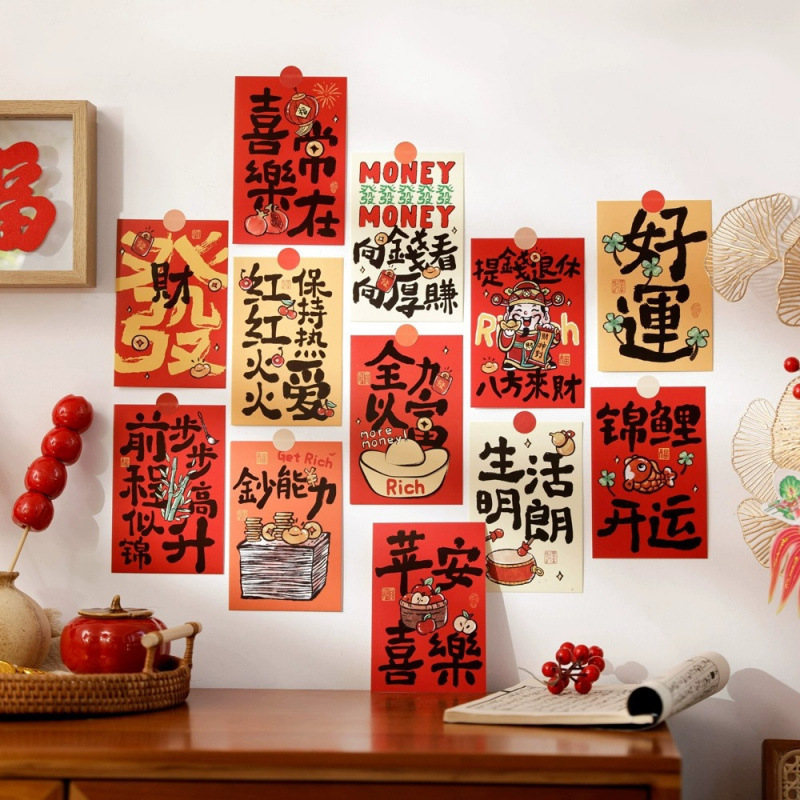 福
喜樂
常在
MONEY
發發發發發
MONEY
向錢看
向厚賺
發
財
紅紅火火
保持热爱
提錢退休
Rich
八方來財
好運
全力
以富
more
money!
Rich
前程似锦
步步高升
Get Rich
鈔能力
生活
明朗
锦鲤
开运
苹安
喜樂